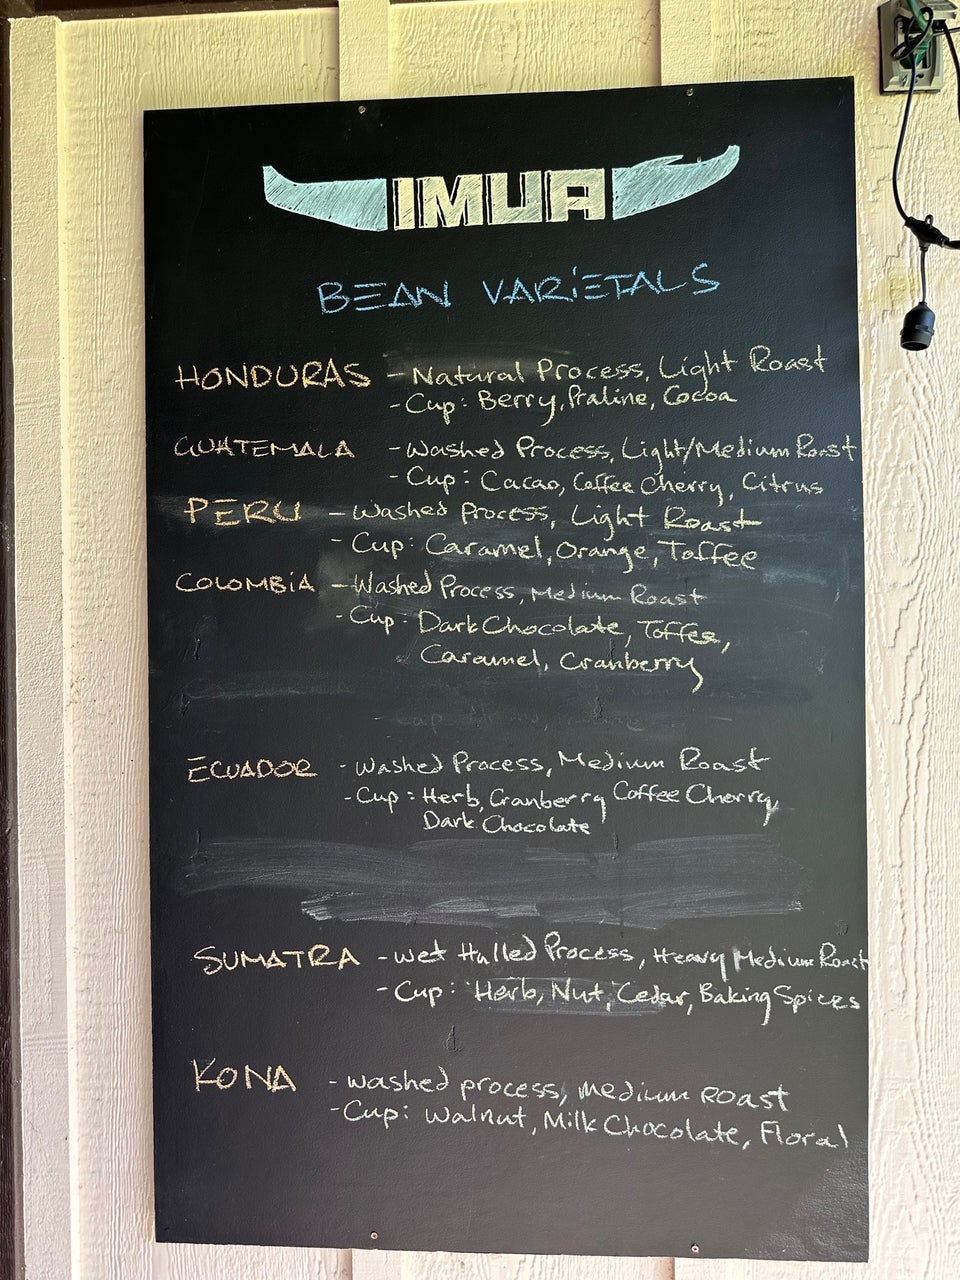 IMUA
BEAN VARIETALS
HONDURAS - Natural Process, Light Roast
- Cup: Berry, Praline, Cocoa
GUATEMALA - Washed Process, Light/Medium Roast
- Cup: Cacao, Coffee Cherry, Citrus
PERU - Washed Process, Light Roast
- Cup: Caramel, Orange, Toffee
COLOMBiA - Washed Process, Medium Roast
- Cup: Dark Chocolate, Toffee,
Caramel, Cranberry
ECUADOR - Washed Process, Medium Roast
- Cup: Herb, Cranberry Coffee Cherry,
Dark Chocolate
SUMATRA - Wet Hulled Process, Heavy Medium Roast
- Cup: Herb, Nut, Cedar, Baking Spices
KONA - washed process, medium ROAST
- Cup: Walnut, Milk Chocolate, Floral